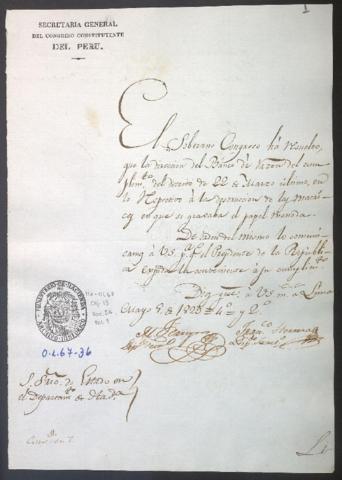 1
SECRETARIA GENERAL
DEL CONGRESO CONSTITUYENTE
DEL PERU.
El Soberano Congreso há resuelto,
que la direccion del Banco dé razon del cum
plim.to del decreto de 22 de Marzo ultimo, en
lo respectivo à la destruccion de las
en que se gravaba el papel moneda.
De orden del mismo lo comuni
camos à VS. p.a q.e el Presidente de la Repúbli
ca expida la conveniente á su cumplim.to
Dios gue. à VS. m.s a.s Lima
Mayo de 1823 4.o y 2.o
MINISTERIO DE HACIENDA
O.L.67-36
S. Srio. de Estado en
el Departam.to de Hac.da